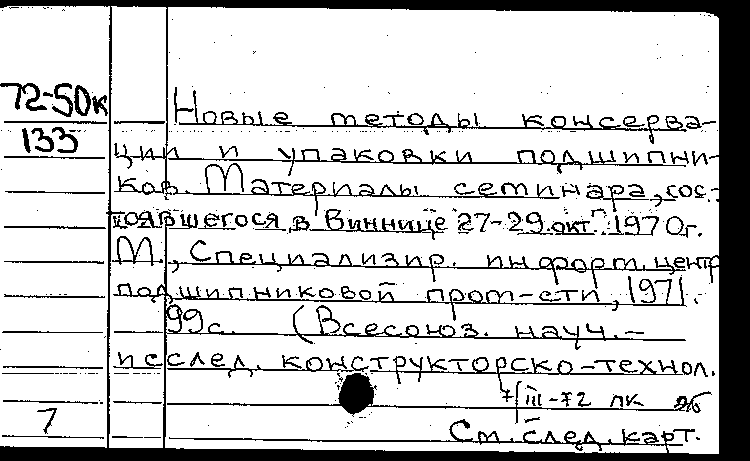 72-50к Новые методы консерва-
133 ции и упаковки подшипни-
ков. Материалы семинара, сос-
тоявшегося в Виннице 27-29 окт. 1970г.
М., Специализир. информ. центр
подшипниковой пром-сти, 1971.
99с. (Всесоюз. науч.-
исслед. конструкторско-технол.
7/III-72 ПК
7 См. след. карт.